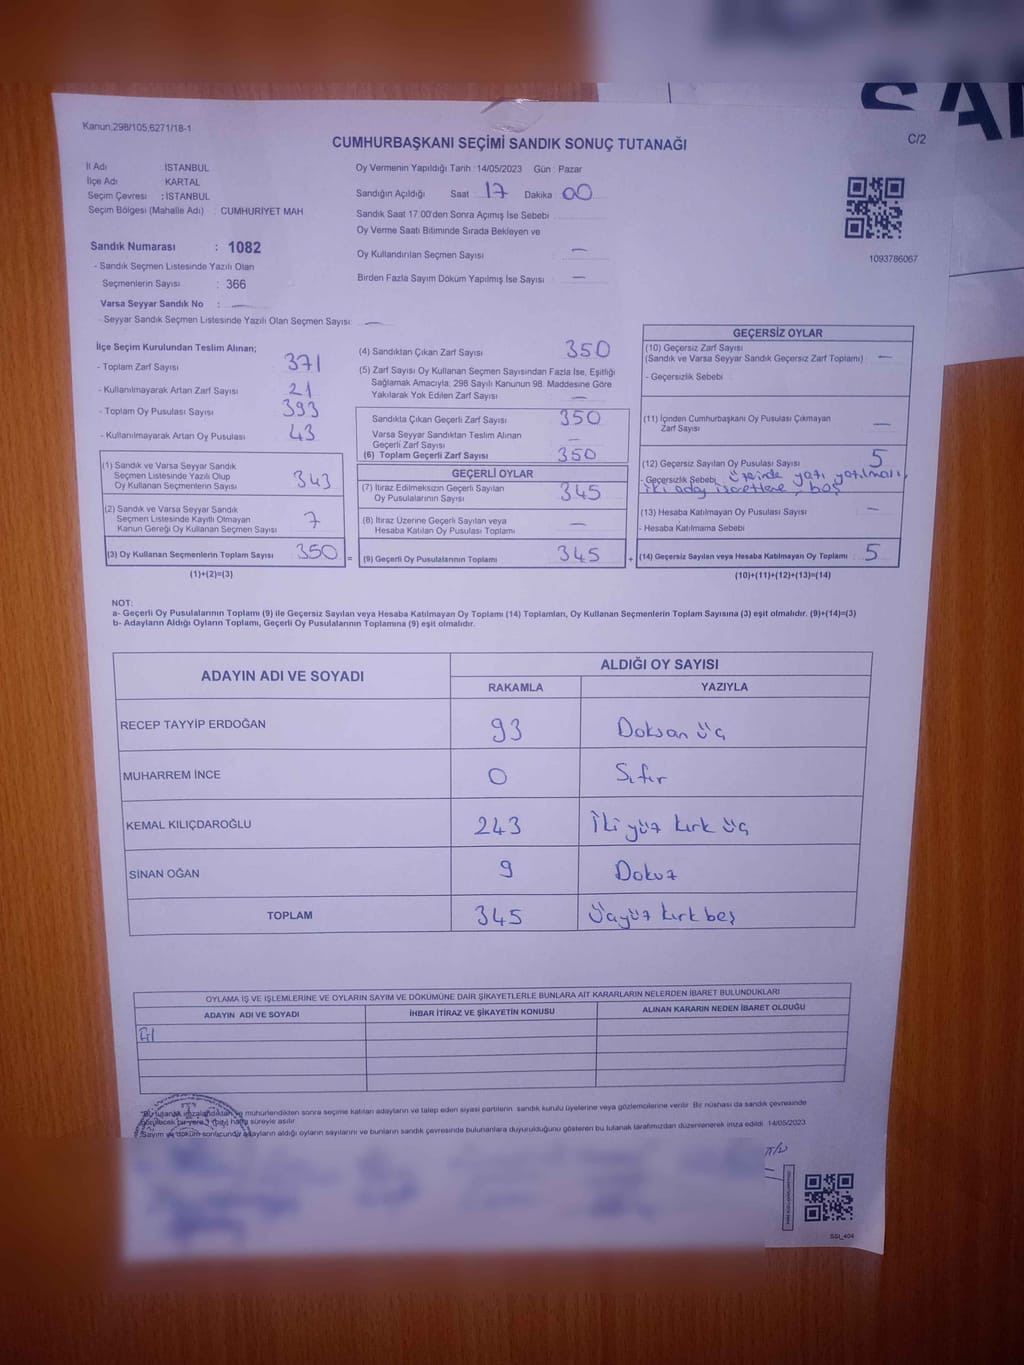 SAN
Kanun,298/105,6271/18-1
C/2
CUMHURBAŞKANI SEÇİMİ SANDIK SONUÇ TUTANAĞI
İl Adı : İSTANBUL
İlçe Adı : KARTAL
Seçim Çevresi : İSTANBUL
Seçim Bölgesi (Mahalle Adı) : CUMHURİYET MAH
Oy Vermenin Yapıldığı Tarih : 14/05/2023 Gün : Pazar
Sandığın Açıldığı Saat : 17 Dakika : 00
Sandık Saat 17:00'den Sonra Açımış İse Sebebi :
Oy Verme Saati Bitiminde Sırada Bekleyen ve
Oy Kullandırılan Seçmen Sayısı : —
Birden Fazla Sayım Döküm Yapılmış İse Sayısı : —
1093786067
Sandık Numarası : 1082
- Sandık Seçmen Listesinde Yazılı Olan
Seçmenlerin Sayısı : 366
Varsa Seyyar Sandık No : —
- Seyyar Sandık Seçmen Listesinde Yazılı Olan Seçmen Sayısı: —
İlçe Seçim Kurulundan Teslim Alınan;
- Toplam Zarf Sayısı : 371
- Kullanılmayarak Artan Zarf Sayısı : 21
- Toplam Oy Pusulası Sayısı : 393
- Kullanılmayarak Artan Oy Pusulası : 43
(1) Sandık ve Varsa Seyyar Sandık
Seçmen Listesinde Yazılı Olup
Oy Kullanan Seçmenlerin Sayısı : 343
(2) Sandık ve Varsa Seyyar Sandık
Seçmen Listesinde Kayıtlı Olmayan
Kanun Gereği Oy Kullanan Seçmen Sayısı : 7
(3) Oy Kullanan Seçmenlerin Toplam Sayısı : 350 =
(1)+(2)=(3)
(4) Sandıktan Çıkan Zarf Sayısı : 350
(5) Zarf Sayısı Oy Kullanan Seçmen Sayısından Fazla İse, Eşitliği
Sağlamak Amacıyla, 298 Sayılı Kanunun 98. Maddesine Göre
Yakılarak Yok Edilen Zarf Sayısı : —
Sandıkta Çıkan Geçerli Zarf Sayısı : 350
Varsa Seyyar Sandıktan Teslim Alınan
Geçerli Zarf Sayısı : —
(6) Toplam Geçerli Zarf Sayısı : 350
GEÇERLİ OYLAR
(7) İtiraz Edilmeksizin Geçerli Sayılan
Oy Pusulalarının Sayısı : 345
(8) İtiraz Üzerine Geçerli Sayılan veya
Hesaba Katılan Oy Pusulası Toplamı : —
(9) Geçerli Oy Pusulalarının Toplamı : 345 +
GEÇERSİZ OYLAR
(10) Geçersiz Zarf Sayısı
(Sandık ve Varsa Seyyar Sandık Geçersiz Zarf Toplamı) : —
- Geçersizlik Sebebi :
(11) İçinden Cumhurbaşkanı Oy Pusulası Çıkmayan
Zarf Sayısı : —
(12) Geçersiz Sayılan Oy Pusulası Sayısı : 5
- Geçersizlik Sebebi : Üzerinde yazı yazılması,
iki aday işaretleme, boş
(13) Hesaba Katılmayan Oy Pusulası Sayısı : —
- Hesaba Katılmama Sebebi :
(14) Geçersiz Sayılan veya Hesaba Katılmayan Oy Toplamı : 5
(10)+(11)+(12)+(13)=(14)
NOT:
a- Geçerli Oy Pusulalarının Toplamı (9) ile Geçersiz Sayılan veya Hesaba Katılmayan Oy Toplamı (14) Toplamları, Oy Kullanan Seçmenlerin Toplam Sayısına (3) eşit olmalıdır. (9)+(14)=(3)
b- Adayların Aldığı Oyların Toplamı, Geçerli Oy Pusulalarının Toplamına (9) eşit olmalıdır.
ADAYIN ADI VE SOYADI ALDIĞI OY SAYISI
RAKAMLA YAZIYLA
RECEP TAYYİP ERDOĞAN 93 Doksan üç
MUHARREM İNCE 0 Sıfır
KEMAL KILIÇDAROĞLU 243 İki yüz kırk üç
SİNAN OĞAN 9 Dokuz
TOPLAM 345 Üçyüz kırk beş
OYLAMA İŞ VE İŞLEMLERİNE VE OYLARIN SAYIM VE DÖKÜMÜNE DAİR ŞİKAYETLERLE BUNLARA AİT KARARLARIN NELERDEN İBARET BULUNDUKLARI
ADAYIN ADI VE SOYADI İHBAR İTİRAZ VE ŞİKAYETİN KONUSU ALINAN KARARIN NEDEN İBARET OLDUĞU
"Bu tutanak imzalandıktan ve mühürlendikten sonra seçime katılan adayların ve talep eden siyasi partilerin sandık kurulu üyelerine veya gözlemcilerine verilir. Bir nüshası da sandık çevresinde
görülecek bir yere 1 (bir) hafta süreyle asılır
Sayım ve döküm sonucunda adayların aldığı oyların sayılarını ve bunların sandık çevresinde bulunanlara duyurulduğunu gösteren bu tutanak tarafımızdan düzenlenerek imza edildi. 14/05/2023
SSI_404